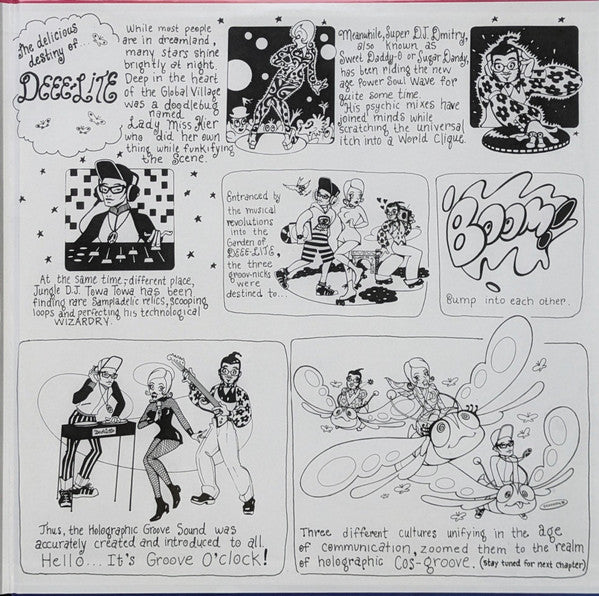 The delicious
destiny of...
DEEE-LITE
While most people
are in dreamland,
many stars shine
brightly at night.
Deep in the heart
of the Global Village
was a doodlebug
named
Lady Miss Kier
who did her own
thing while funkifying
the scene.
Meanwhile, Super D.J. Dmitry,
also known as
Sweet Daddy-O or Sugar Dandy,
has been riding the new
age Power Soul Wave for
quite some time.
His psychic mixes have
joined minds while
scratching the universal
itch into a World Clique.
At the same time; different place,
Jungle D.J. Towa Towa has been
finding rare Sampladelic relics, scooping
loops and perfecting his technological
WIZARDRY.
Entranced by
the musical
revolutions
into the
Garden of
DEEE-LITE,
the three
groov-nicks
were
destined to...
BOOM!
Bump into each other.
Thus, the Holographic Groove Sound was
accurately created and introduced to all.
Hello... It's Groove O'clock!
Three different cultures unifying in the age
of communication, zoomed them to the realm
of holographic Cos-groove. (stay tuned for next chapter)